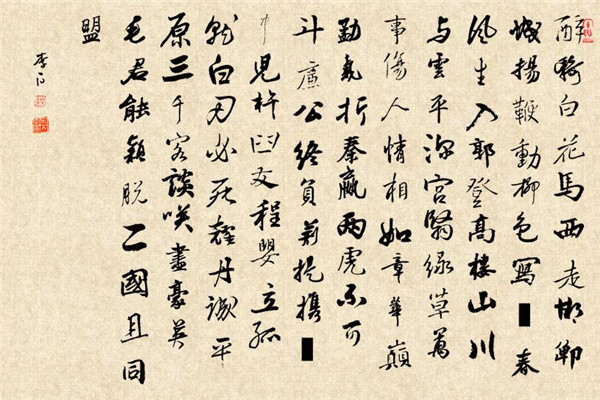 醉騎白花馬西走邯鄲
城揚鞭動柳色寫■春
風生入郭登高樓山川
与雲平深宮翳綠草萬
事傷人情相如章華巔
勐氣折秦嬴兩虎不可
斗廉公終負荊提攜■
中兒杵臼及程嬰立孤
就白刃必死耀丹誠平
原三千客談笑盡豪英
毛君能穎脫二國且同
盟